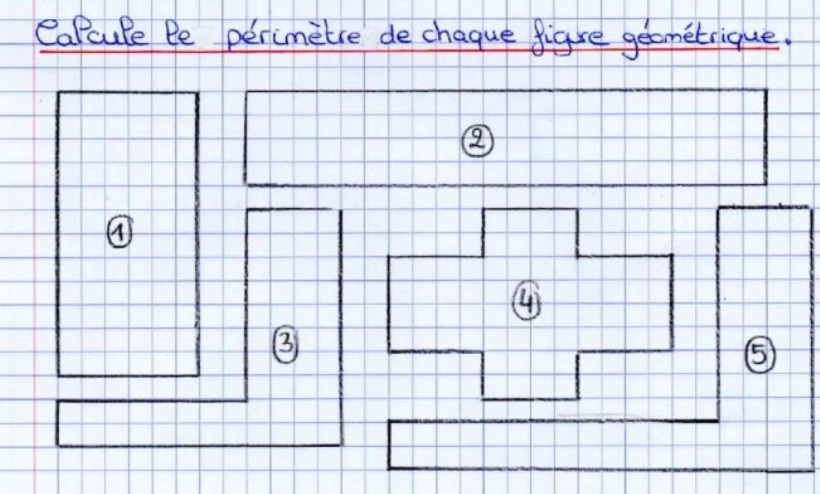 Calcule le périmètre de chaque figure géométrique.
1
2
3
4
5